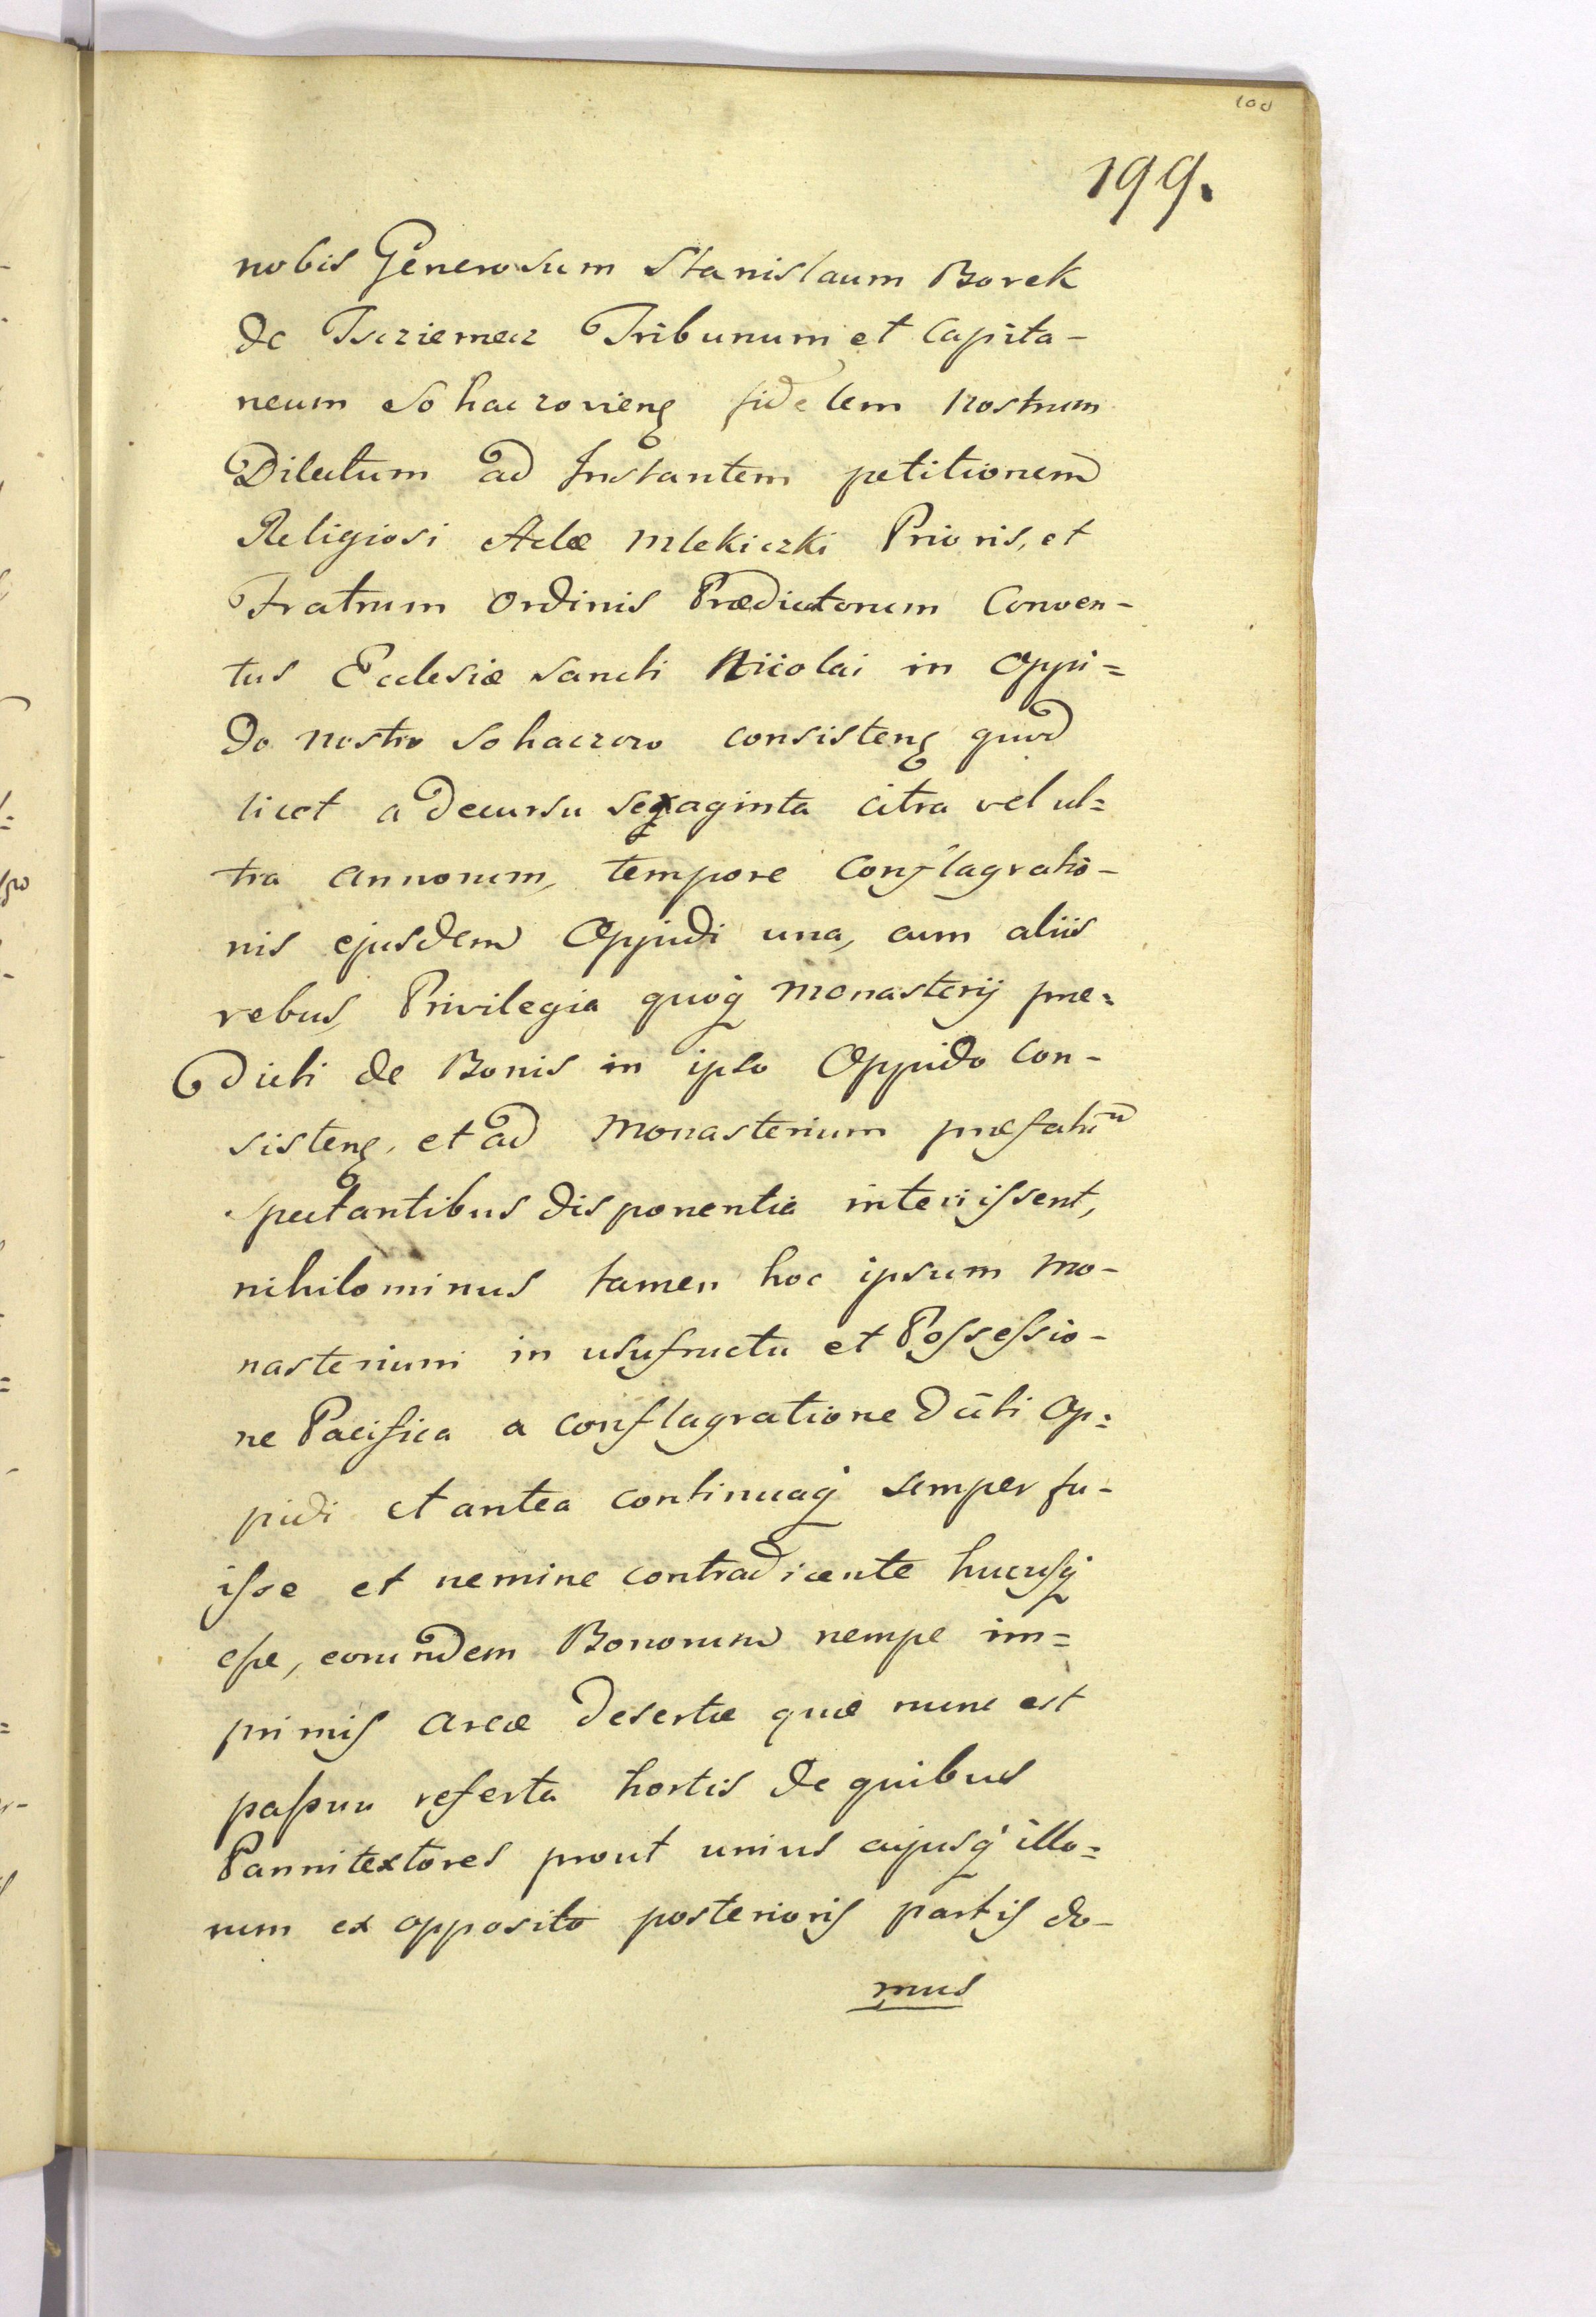 100
199.
nobis Generosum Stanislaum Borek
de Trzciemecz Tribunum et Capita-
neum Sohaczoviens fidelem Nostrum
Dilectum ad Instantem petitionem
Religiosi Adæ Mlekiczki Prioris, et
Fratrum Ordinis Prædicatorum Conven-
tus Ecclesiæ Sancti Nicolai in Oppi=
do nostro Sohaczow consistens quod
licet a decursu sexaginta citra vel ul=
tra annorum, tempore Conflagratio-
nis ejusdem Oppidi una, cum aliis
rebus, Privilegia quoq Monasterij præ=
dicti de Bonis in ipso Oppido con-
sistens, et ad Monasterium præfatum
spectantibus disponentia interiissent,
nihilominus tamen hoc ipsum Mo-
nasterium in usufructu et Possessio-
ne Pacifica a conflagratione dicti Op=
pidi et antea continuaq semper fu-
isse et nemine contradicente hucusq
esse, eorundem Bonorum nempe im=
primis areæ desertæ quæ nunc est
passim referta hortis de quibus
Pannitextores prout unius cujusq illo=
rum ex opposito posterioris partis do-
mus